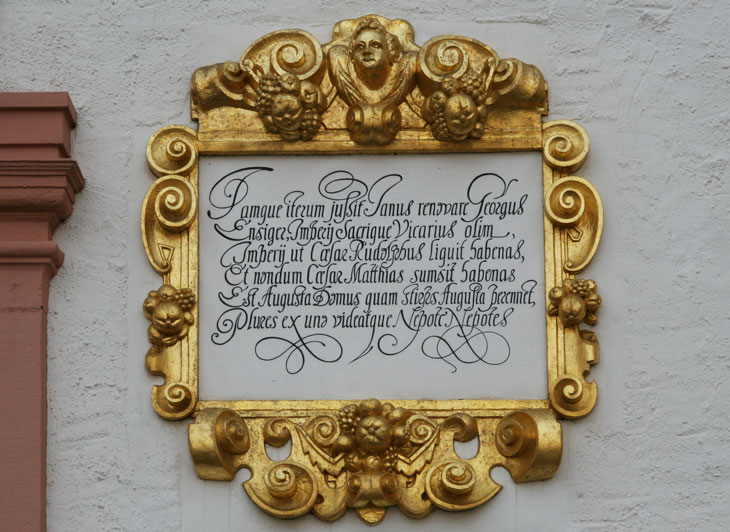 Iamque iterum jussit Janus renovare Georgus
Ensiger, Imperij Sacrique Vicarius olim,
Imperij ut Cæsar Rudolphus liquit habenas,
Et nondum Cæsar Matthias sumsit habenas
Est Augusta Domus quam stirps Augusta perennet,
Plures ex uno videatque Nepote Nepotes